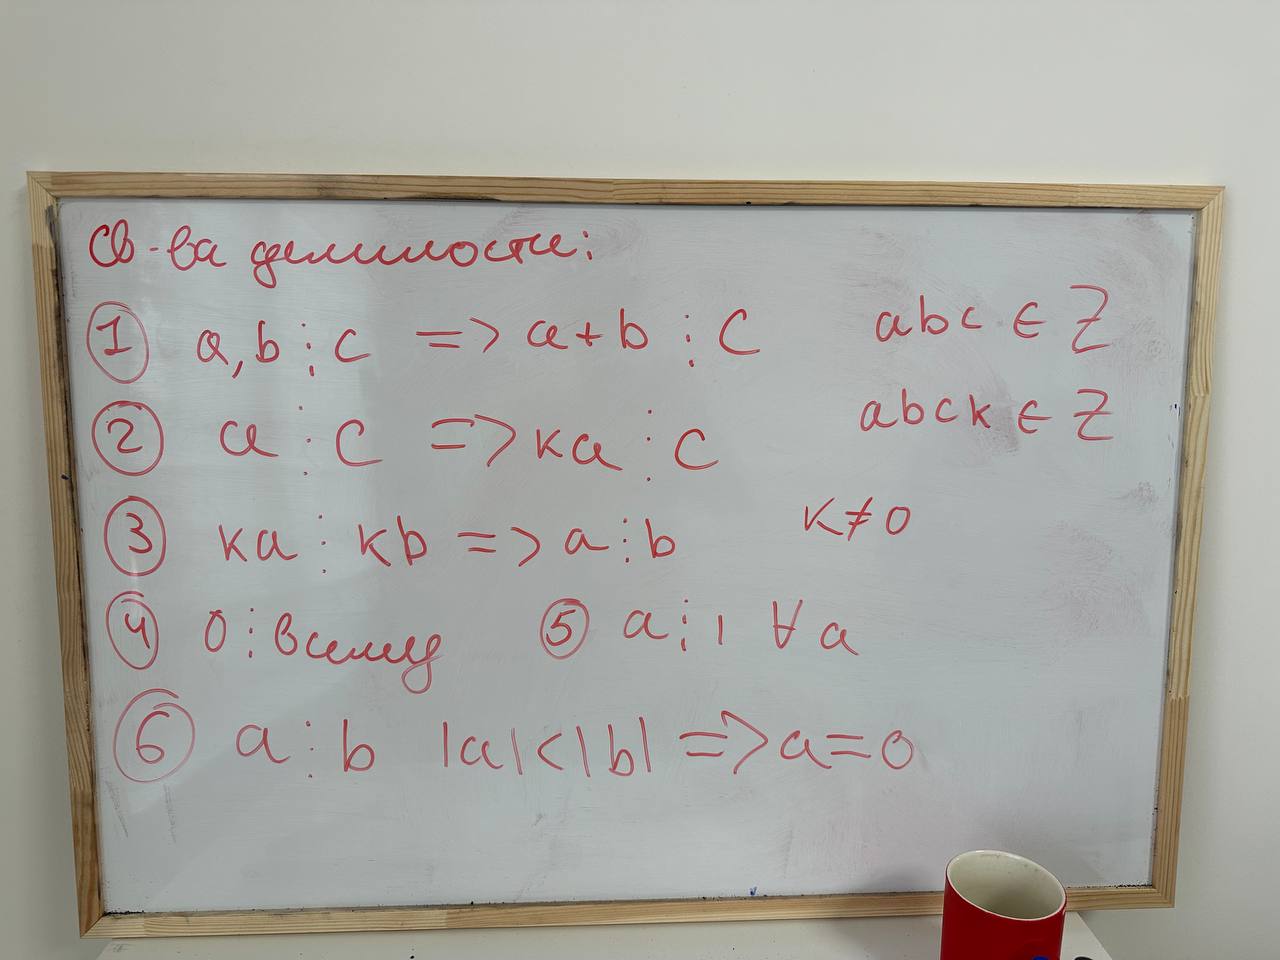 Св-ва делимости:
① a,b ⋮ c => a+b ⋮ c abc ∈ Z
② a ⋮ c => ka ⋮ c abck ∈ Z
③ ka ⋮ kb => a ⋮ b k≠0
④ 0 ⋮ всему ⑤ a ⋮ 1 ∀a
⑥ a ⋮ b |a|<|b| => a=0